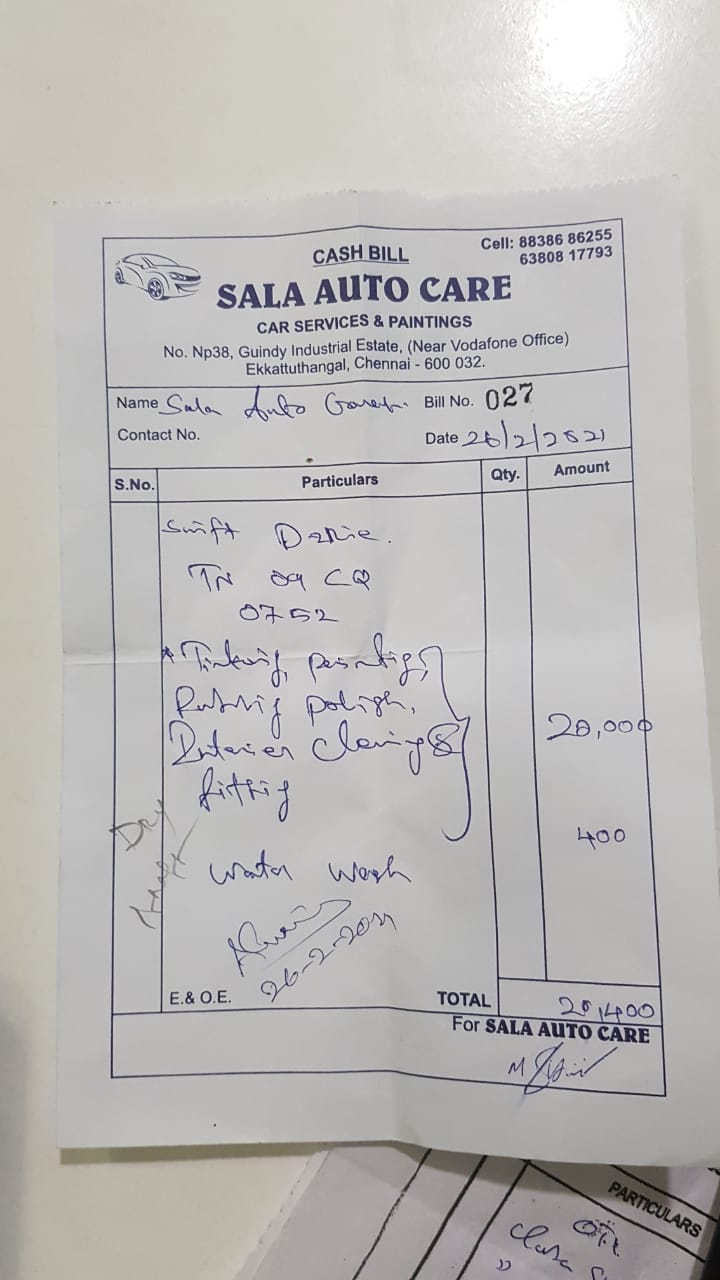 CASH BILL
Cell: 88386 86255
63808 17793
SALA AUTO CARE
CAR SERVICES & PAINTINGS
No. Np38, Guindy Industrial Estate, (Near Vodafone Office)
Ekkattuthangal, Chennai - 600 032.
Name Sala Auto Bill No. 027
Contact No. Date 26/2/2021
S.No. Particulars Qty. Amount
Swift
TN 09 CQ
0752
Polish, 20,000
Interior &
400
Water Wash
26-2-2021
E.& O.E. TOTAL 20,400
For SALA AUTO CARE
PARTICULARS
Oil